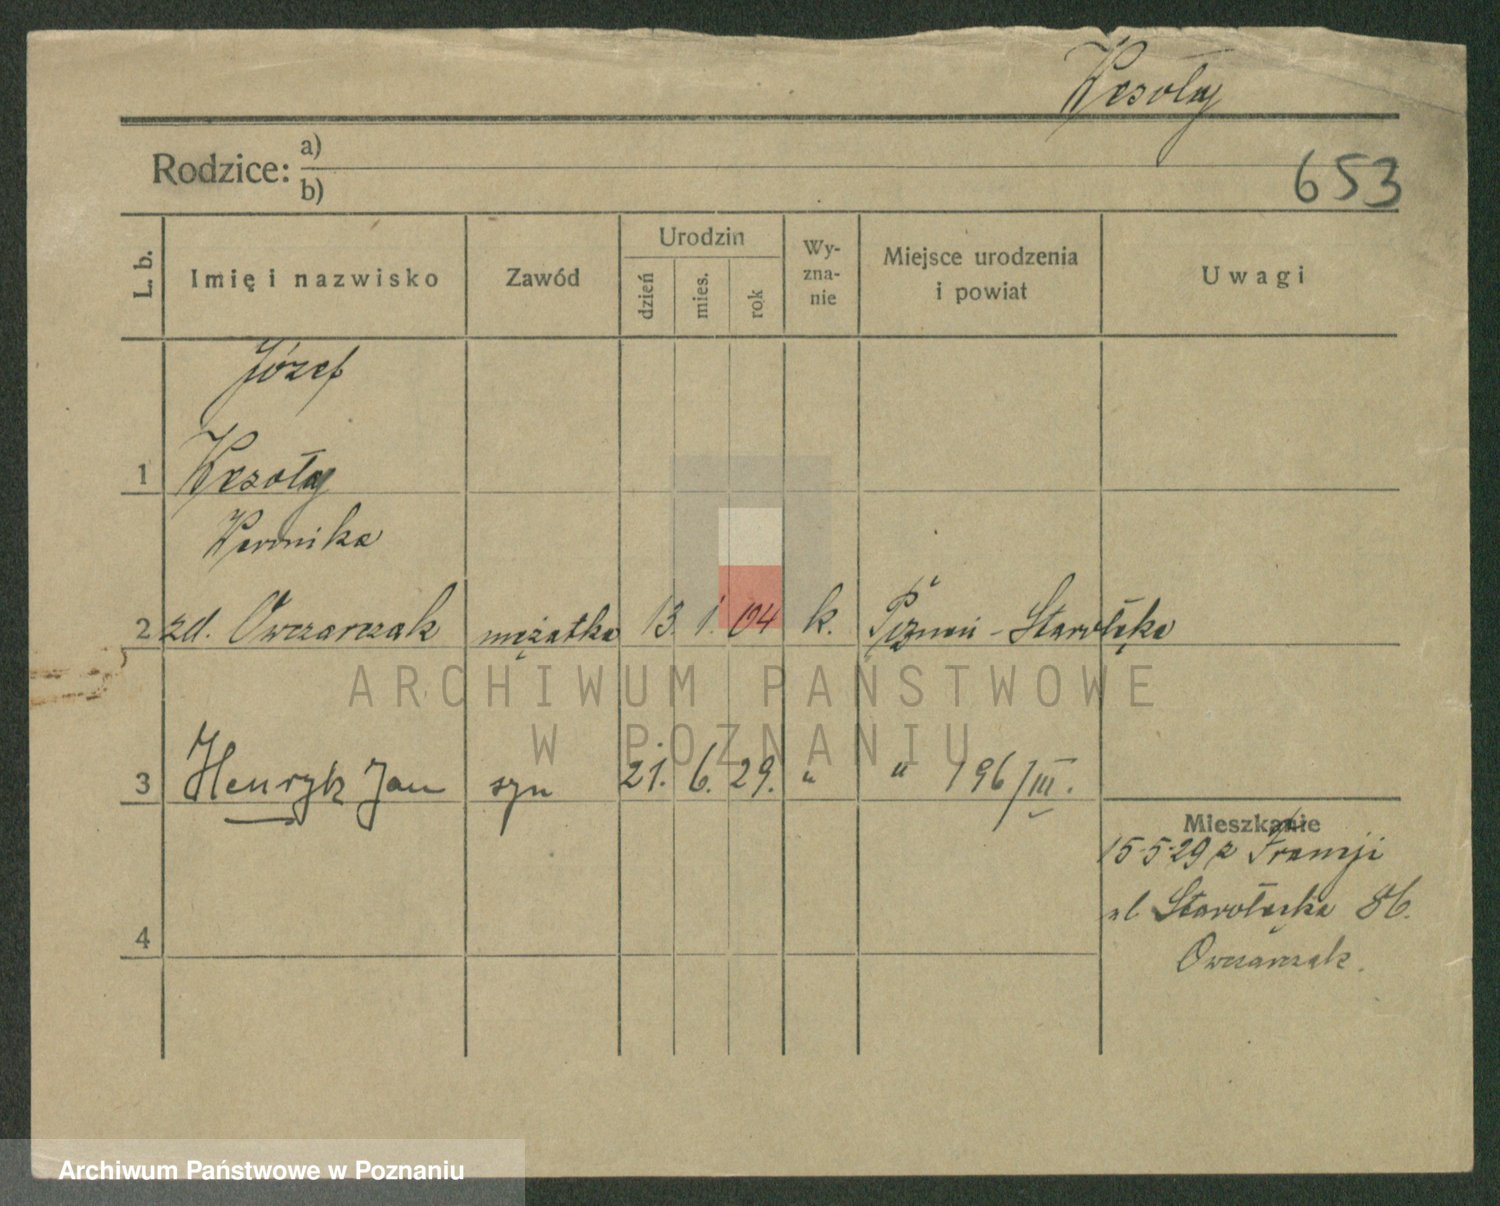 Wesoły
Rodzice: a)
b)
653
L. b.
Imię i nazwisko
Zawód
Urodzin
dzień
mies.
rok
Wy-
zna-
nie
Miejsce urodzenia
i powiat
Uwagi
Józef
1 Wesoły
Weronika
2 zd. Owczarczak mężatka 13. 1. 04 k. Poznań - Starołęka
ARCHIWUM PAŃSTWOWE
W POZNANIU
3 Henryk Jan syn 21. 6. 29. " " 196/III.
Mieszkanie
15-5-29 z Francji
ul Starołęcka 86.
4
Owczarczak.
Archiwum Państwowe w Poznaniu